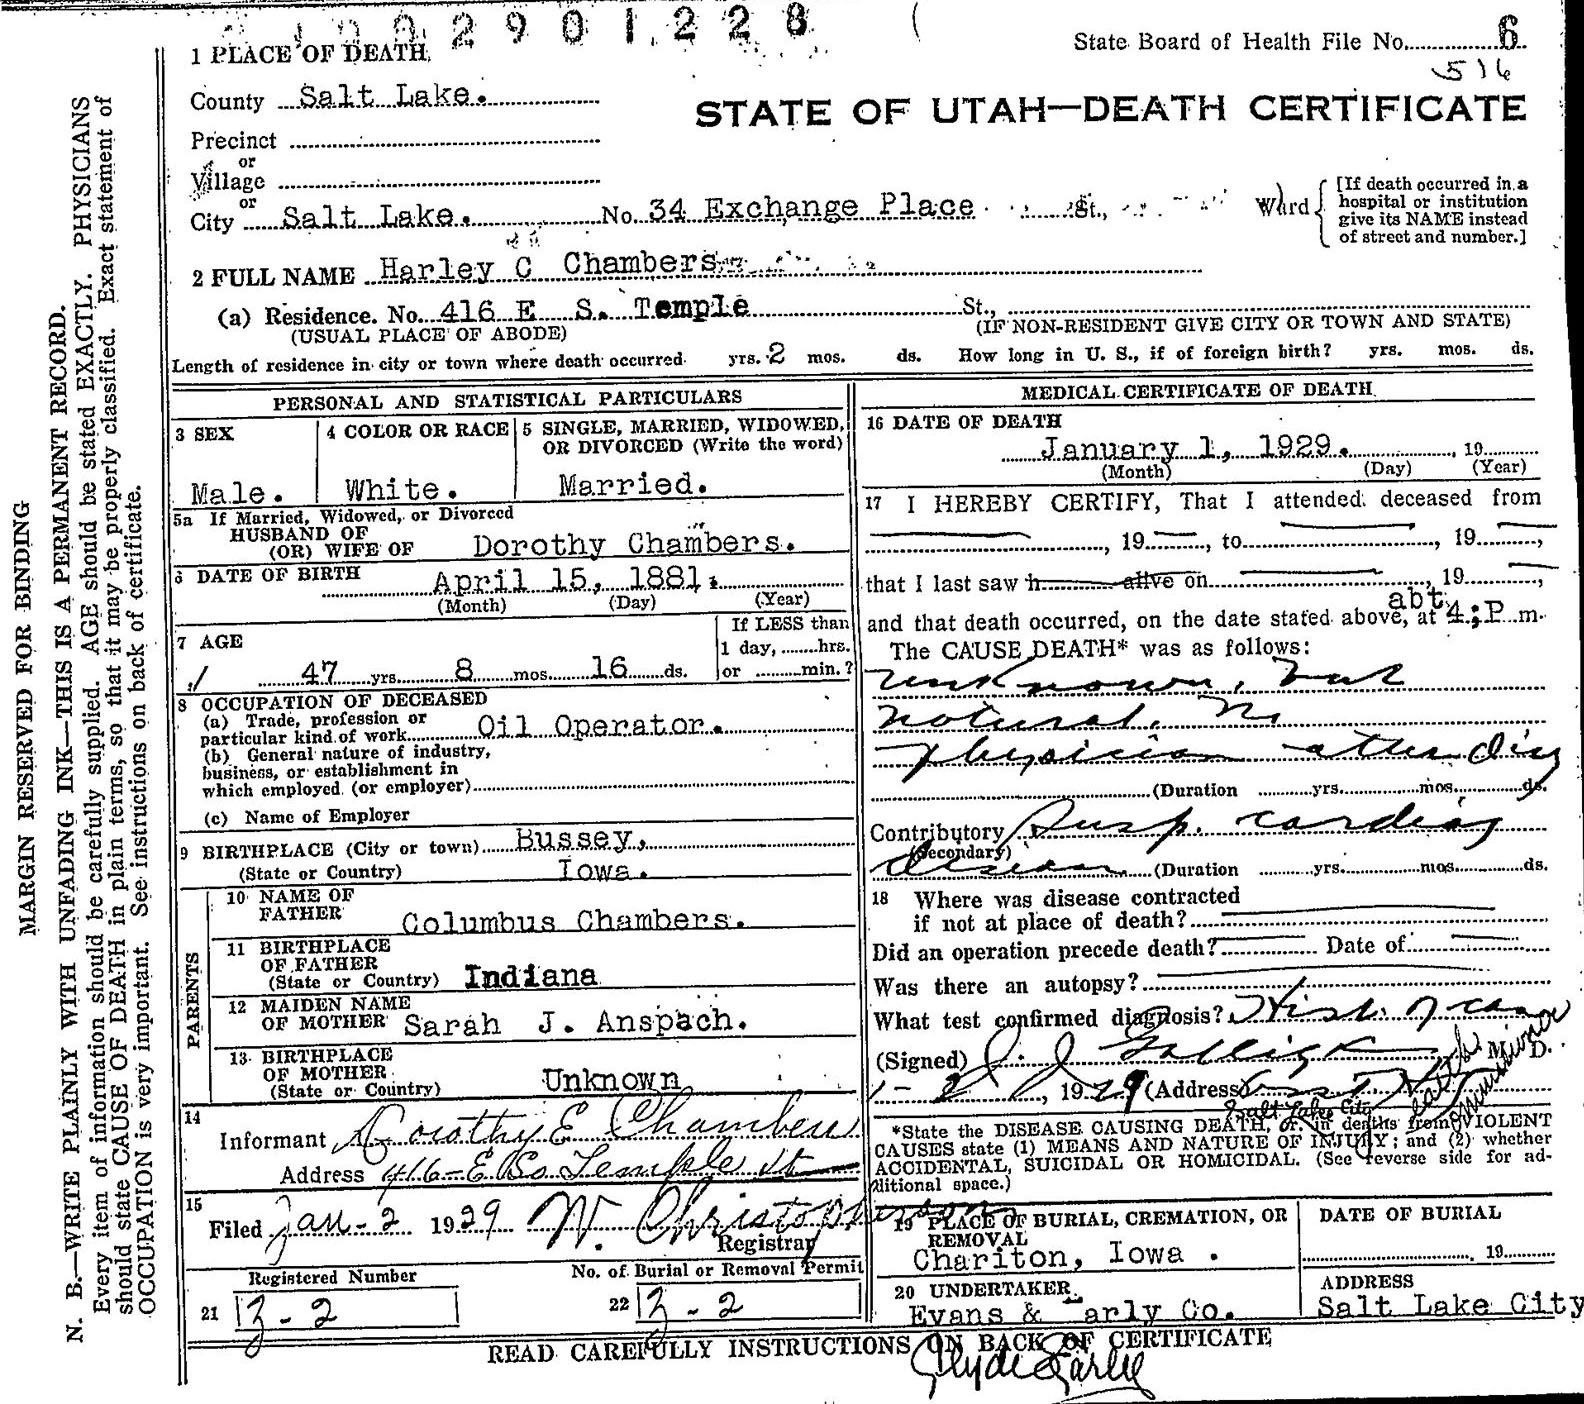 2901228
State Board of Health File No. 6
516
1 PLACE OF DEATH
STATE OF UTAH—DEATH CERTIFICATE
County Salt Lake.
Precinct
or
Village
or
City Salt Lake. No. 34 Exchange Place St., Ward
[If death occurred in a
hospital or institution
give its NAME instead
of street and number.]
2 FULL NAME Harley C Chambers
(a) Residence. No. 416 E S. Temple St.,
(USUAL PLACE OF ABODE) (IF NON-RESIDENT GIVE CITY OR TOWN AND STATE)
Length of residence in city or town where death occurred yrs. 2 mos. ds. How long in U. S., if of foreign birth? yrs. mos. ds.
PERSONAL AND STATISTICAL PARTICULARS
3 SEX
Male.
4 COLOR OR RACE
White.
5 SINGLE, MARRIED, WIDOWED,
OR DIVORCED (Write the word)
Married.
5a If Married, Widowed, or Divorced
HUSBAND OF
(OR) WIFE OF Dorothy Chambers.
6 DATE OF BIRTH April 15, 1881.
(Month) (Day) (Year)
7 AGE
47 yrs. 8 mos. 16 ds.
If LESS than
1 day, ........hrs.
or ........min.?
8 OCCUPATION OF DECEASED
(a) Trade, profession or
particular kind of work Oil Operator.
(b) General nature of industry,
business, or establishment in
which employed (or employer)
(c) Name of Employer
9 BIRTHPLACE (City or town) Bussey,
(State or Country) Iowa.
PARENTS
10 NAME OF
FATHER Columbus Chambers.
11 BIRTHPLACE
OF FATHER
(State or Country) Indiana
12 MAIDEN NAME
OF MOTHER Sarah J. Anspach.
13 BIRTHPLACE
OF MOTHER
(State or Country) Unknown
14
Informant Dorothy E Chambers
Address 416-E So Temple St
15
Filed Jan-2 1929 W. Christopherson
Registrar
Registered Number
21 3-2
No. of Burial or Removal Permit
22 3-2
MEDICAL CERTIFICATE OF DEATH
16 DATE OF DEATH
January 1, 1929. , 19
(Month) (Day) (Year)
17 I HEREBY CERTIFY, That I attended deceased from
, 19 , to , 19 ,
that I last saw h alive on , 19 ,
abt
and that death occurred, on the date stated above, at 4:P m.
The CAUSE DEATH* was as follows:
Unknown, but
natural. No
physician attending
(Duration yrs. mos. ds.
Contributory Susp. cardiac
(Secondary)
disease (Duration yrs. mos. ds.
18 Where was disease contracted
if not at place of death?
Did an operation precede death? Date of
Was there an autopsy?
What test confirmed diagnosis? Hist. of case
(Signed) M. D.
1-2, 1929 (Address) Health Commissioner
Salt Lake City
*State the DISEASE CAUSING DEATH, or in deaths from VIOLENT
CAUSES state (1) MEANS AND NATURE OF INJURY; and (2) whether
ACCIDENTAL, SUICIDAL OR HOMICIDAL. (See reverse side for ad-
ditional space.)
19 PLACE OF BURIAL, CREMATION, OR
REMOVAL
Chariton, Iowa .
DATE OF BURIAL
19
20 UNDERTAKER
Evans & Early Co.
ADDRESS
Salt Lake City
READ CAREFULLY INSTRUCTIONS ON BACK OF CERTIFICATE
Clyde Early
MARGIN RESERVED FOR BINDING
N. B.—WRITE PLAINLY WITH UNFADING INK—THIS IS A PERMANENT RECORD.
Every item of information should be carefully supplied. AGE should be stated EXACTLY. PHYSICIANS
should state CAUSE OF DEATH in plain terms, so that it may be properly classified. Exact statement of
OCCUPATION is very important. See instructions on back of certificate.